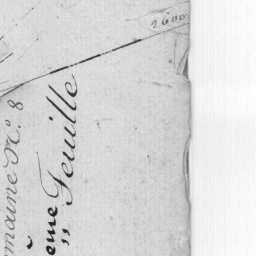 2600
maine N.º 8
eme Feuille